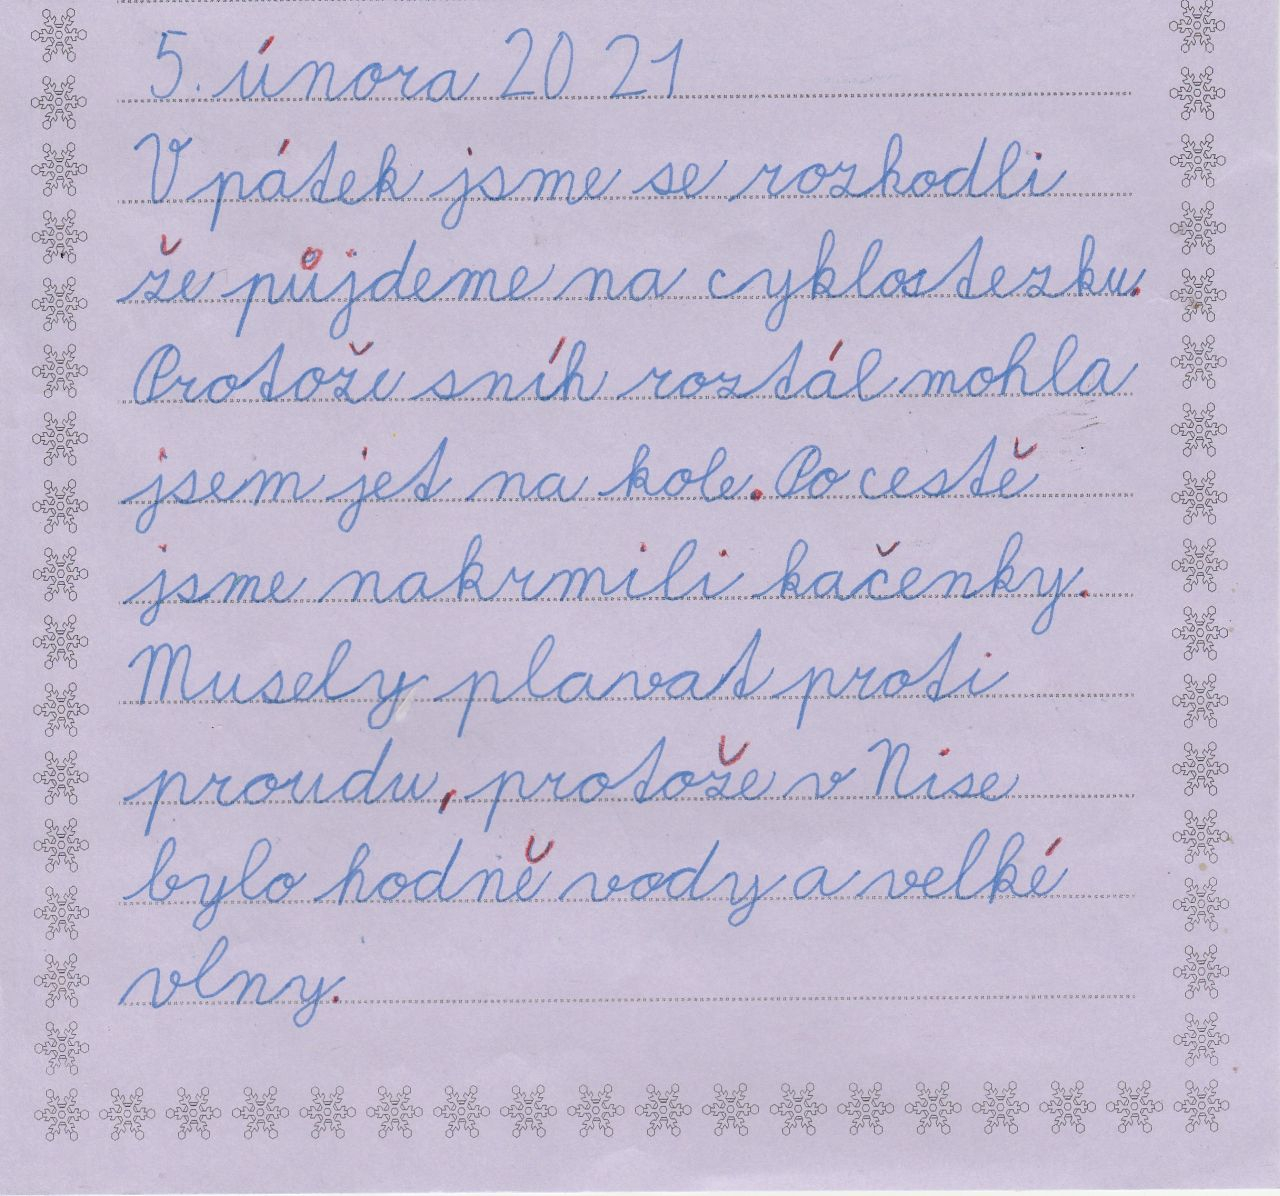 5. února 2021
V pátek jsme se rozhodli
že půjdeme na cyklostezku.
Protože sníh roztál mohla
jsem jet na kole. Po cestě
jsme nakrmili kačenky.
Musely plavat proti
proudu, protože v Nise
bylo hodně vody a velké
vlny.